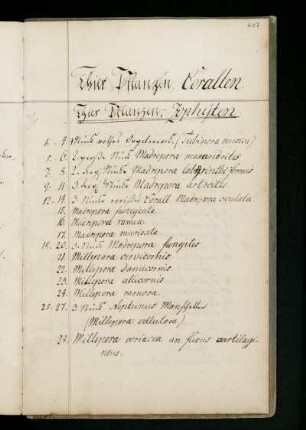 Thier Pflanzen. Corallen
Thier Pflanzen. Zophiſten
1. 4. Stück rothes Orgelwerk. (Tubipora musica)
5. 6. Stück Madrepora
7. 8. 2. Stück Madrepora labyrinthiformis
9. 11. 3 Stück Madrepora astroites
12. 14. 3. Stück Corall. Madrepora oculata
15. Madrepora fastigiata
16. Madrepora ramea
17. Madrepora muricata
18. 20. 3. Stück Madrepora fungites
21. Millepora cervicornis
22. Millepora damicornis
23. Millepora alcicornis
24. Millepora ramosa.
25. 27. 3. Stück Neptunus Manschetten
(Millepora cellulosa)
28. Millepora coriacea an ficus cartilagi-
neus.